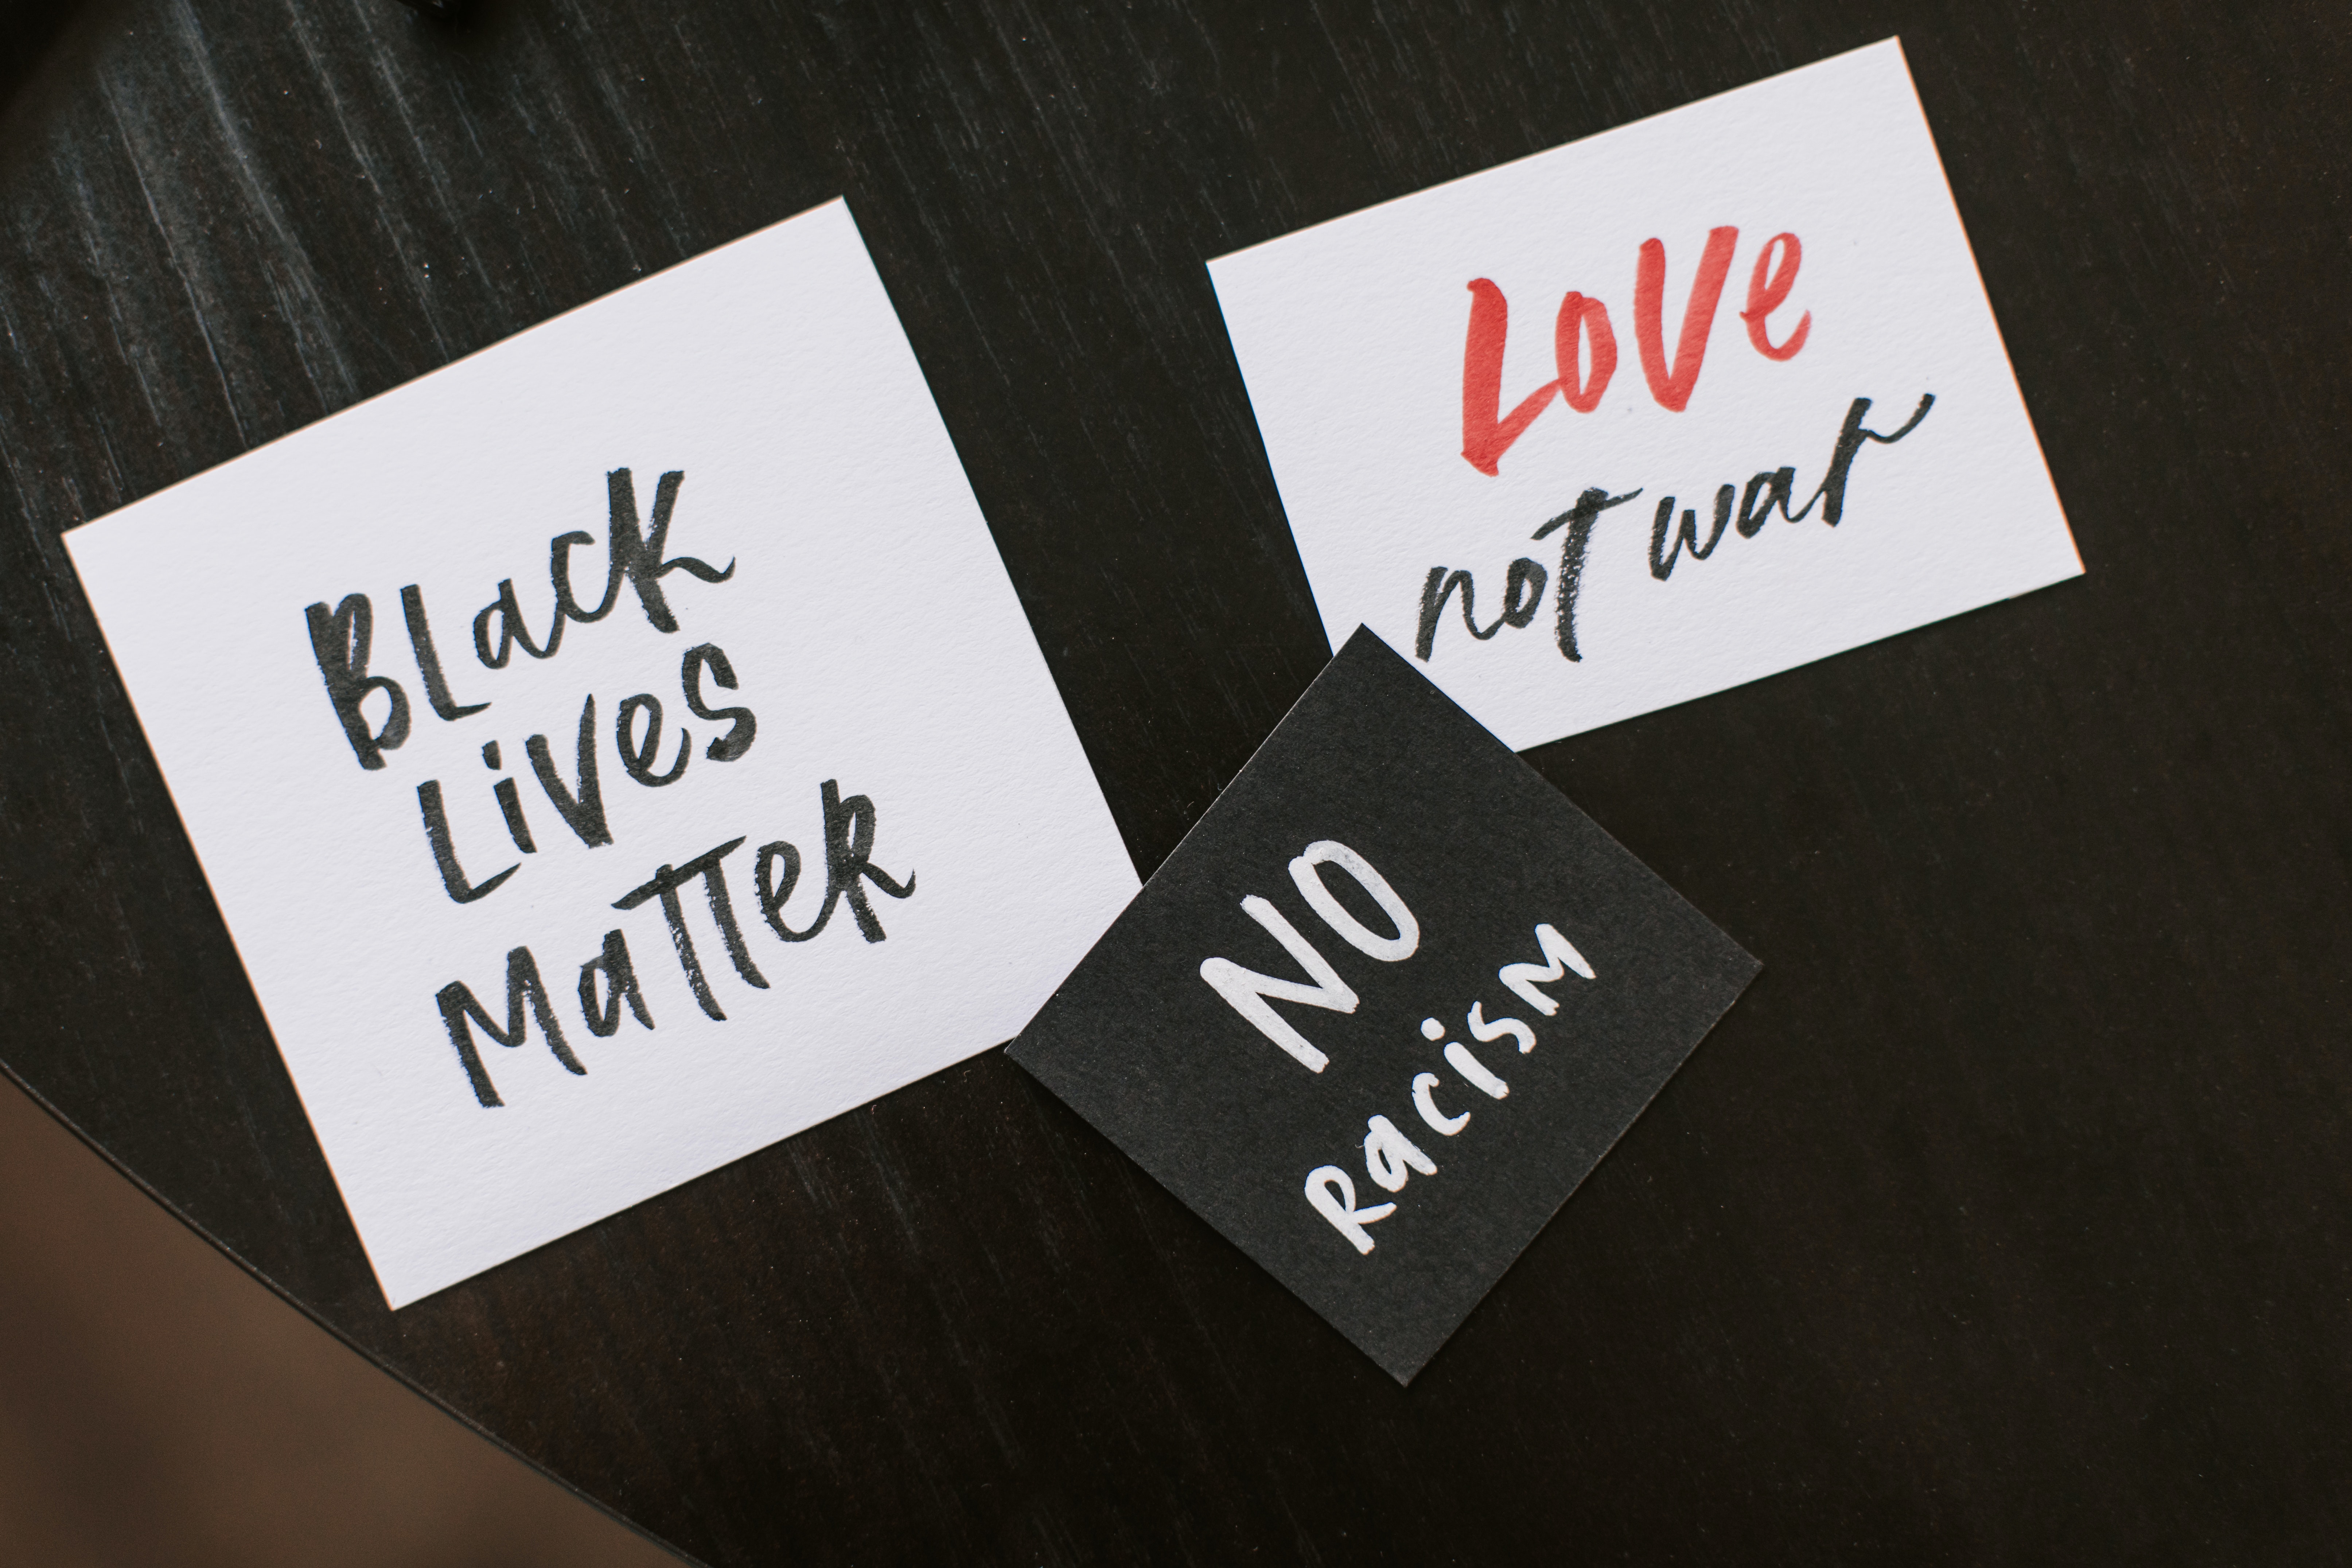 Black
Lives
Matter
Love
not war
NO
Racism